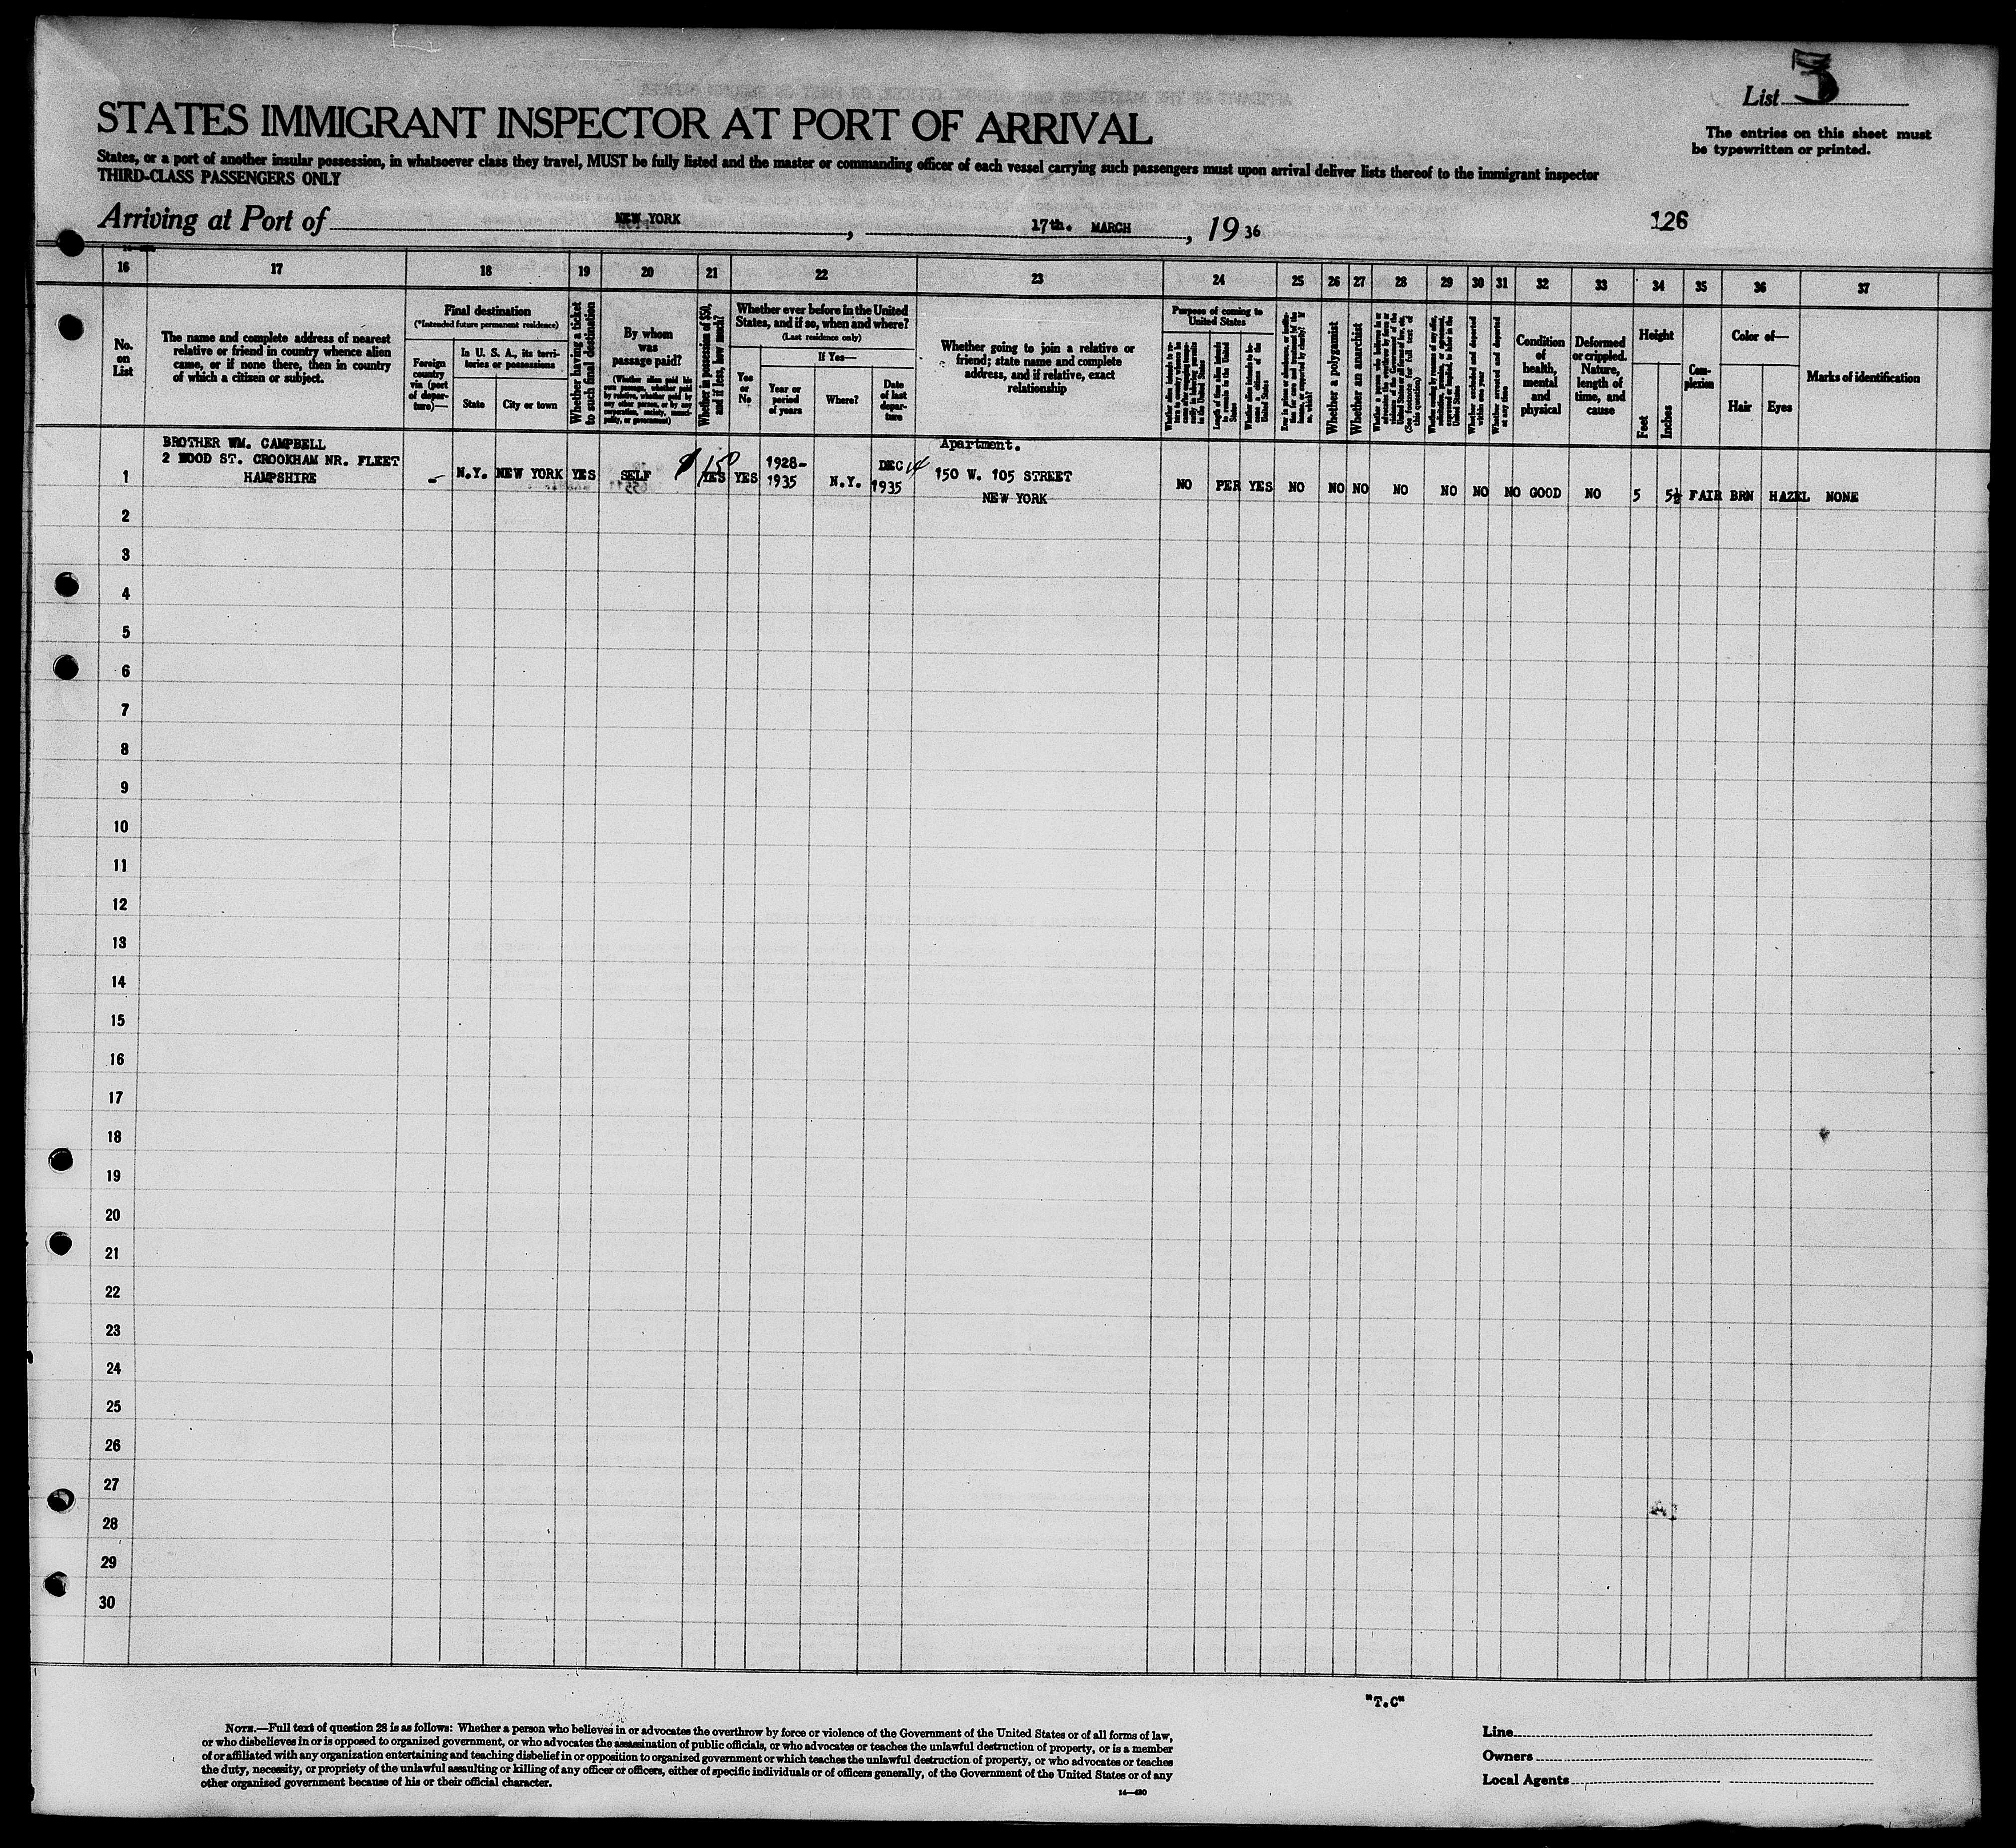 List 3
STATES IMMIGRANT INSPECTOR AT PORT OF ARRIVAL
The entries on this sheet must
be typewritten or printed.
States, or a port of another insular possession, in whatsoever class they travel, MUST be fully listed and the master or commanding officer of each vessel carrying such passengers must upon arrival deliver lists thereof to the immigrant inspector
THIRD-CLASS PASSENGERS ONLY
Arriving at Port of NEW YORK, 17th. MARCH, 19 36
126
16 17 18 19 20 21 22 23 24 25 26 27 28 29 30 31 32 33 34 35 36 37
No.
on
List
The name and complete address of nearest
relative or friend in country whence alien
came, or if none there, then in country
of which a citizen or subject.
Final destination
(*Intended future permanent residence)
Foreign
country
via (port
of depar-
ture)—
In U. S. A., its terri-
tories or possessions
State
City or town
Whether having a ticket
to such final destination
By whom
was
passage paid?
(Whether alien paid his
own passage, whether paid
by relative, whether paid by
any other person, or by any
corporation, society, munici-
pality, or government)
Whether in possession of $50,
and if less, how much?
Whether ever before in the United
States, and if so, when and where?
(Last residence only)
Yes
or
No
If Yes—
Year or
period
of years
Where?
Date
of last
depar-
ture
Whether going to join a relative or
friend; state name and complete
address, and if relative, exact
relationship
Purpose of coming to
United States
Length of time alien intends
to remain in the United
States
Whether alien intends to be-
come a citizen of the
United States
Whether a polygamist
Whether an anarchist
(See footnote for full text of
this question)
Whether excluded and deported
within one year
Whether arrested and deported
at any time
Condition
of
health,
mental
and
physical
Deformed
or crippled.
Nature,
length of
time, and
cause
Height
Feet
Inches
Com-
plexion
Color of—
Hair
Eyes
Marks of identification
BROTHER WM. CAMPBELL
2 WOOD ST. CROOKHAM NR. FLEET
HAMPSHIRE
1 - N.Y. NEW YORK YES SELF $150 YES YES 1928-
1935 N.Y. DEC 14
1935
Apartment.
150 W. 105 STREET
NEW YORK
NO PER YES NO NO NO NO NO NO NO GOOD NO 5 5½ FAIR BRN HAZEL NONE
2
3
4
5
6
7
8
9
10
11
12
13
14
15
16
17
18
19
20
21
22
23
24
25
26
27
28
29
30
"T.C"
NOTE.—Full text of question 28 is as follows: Whether a person who believes in or advocates the overthrow by force or violence of the Government of the United States or of all forms of law,
or who disbelieves in or is opposed to organized government, or who advocates the assassination of public officials, or who advocates or teaches the unlawful destruction of property, or is a member
of or affiliated with any organization entertaining and teaching disbelief in or opposition to organized government or which teaches the unlawful destruction of property, or who advocates or teaches
the duty, necessity, or propriety of the unlawful assaulting or killing of any officer or officers, either of specific individuals or of officers generally, of the Government of the United States or of any
other organized government because of his or their official character.
14—480
Line
Owners
Local Agents